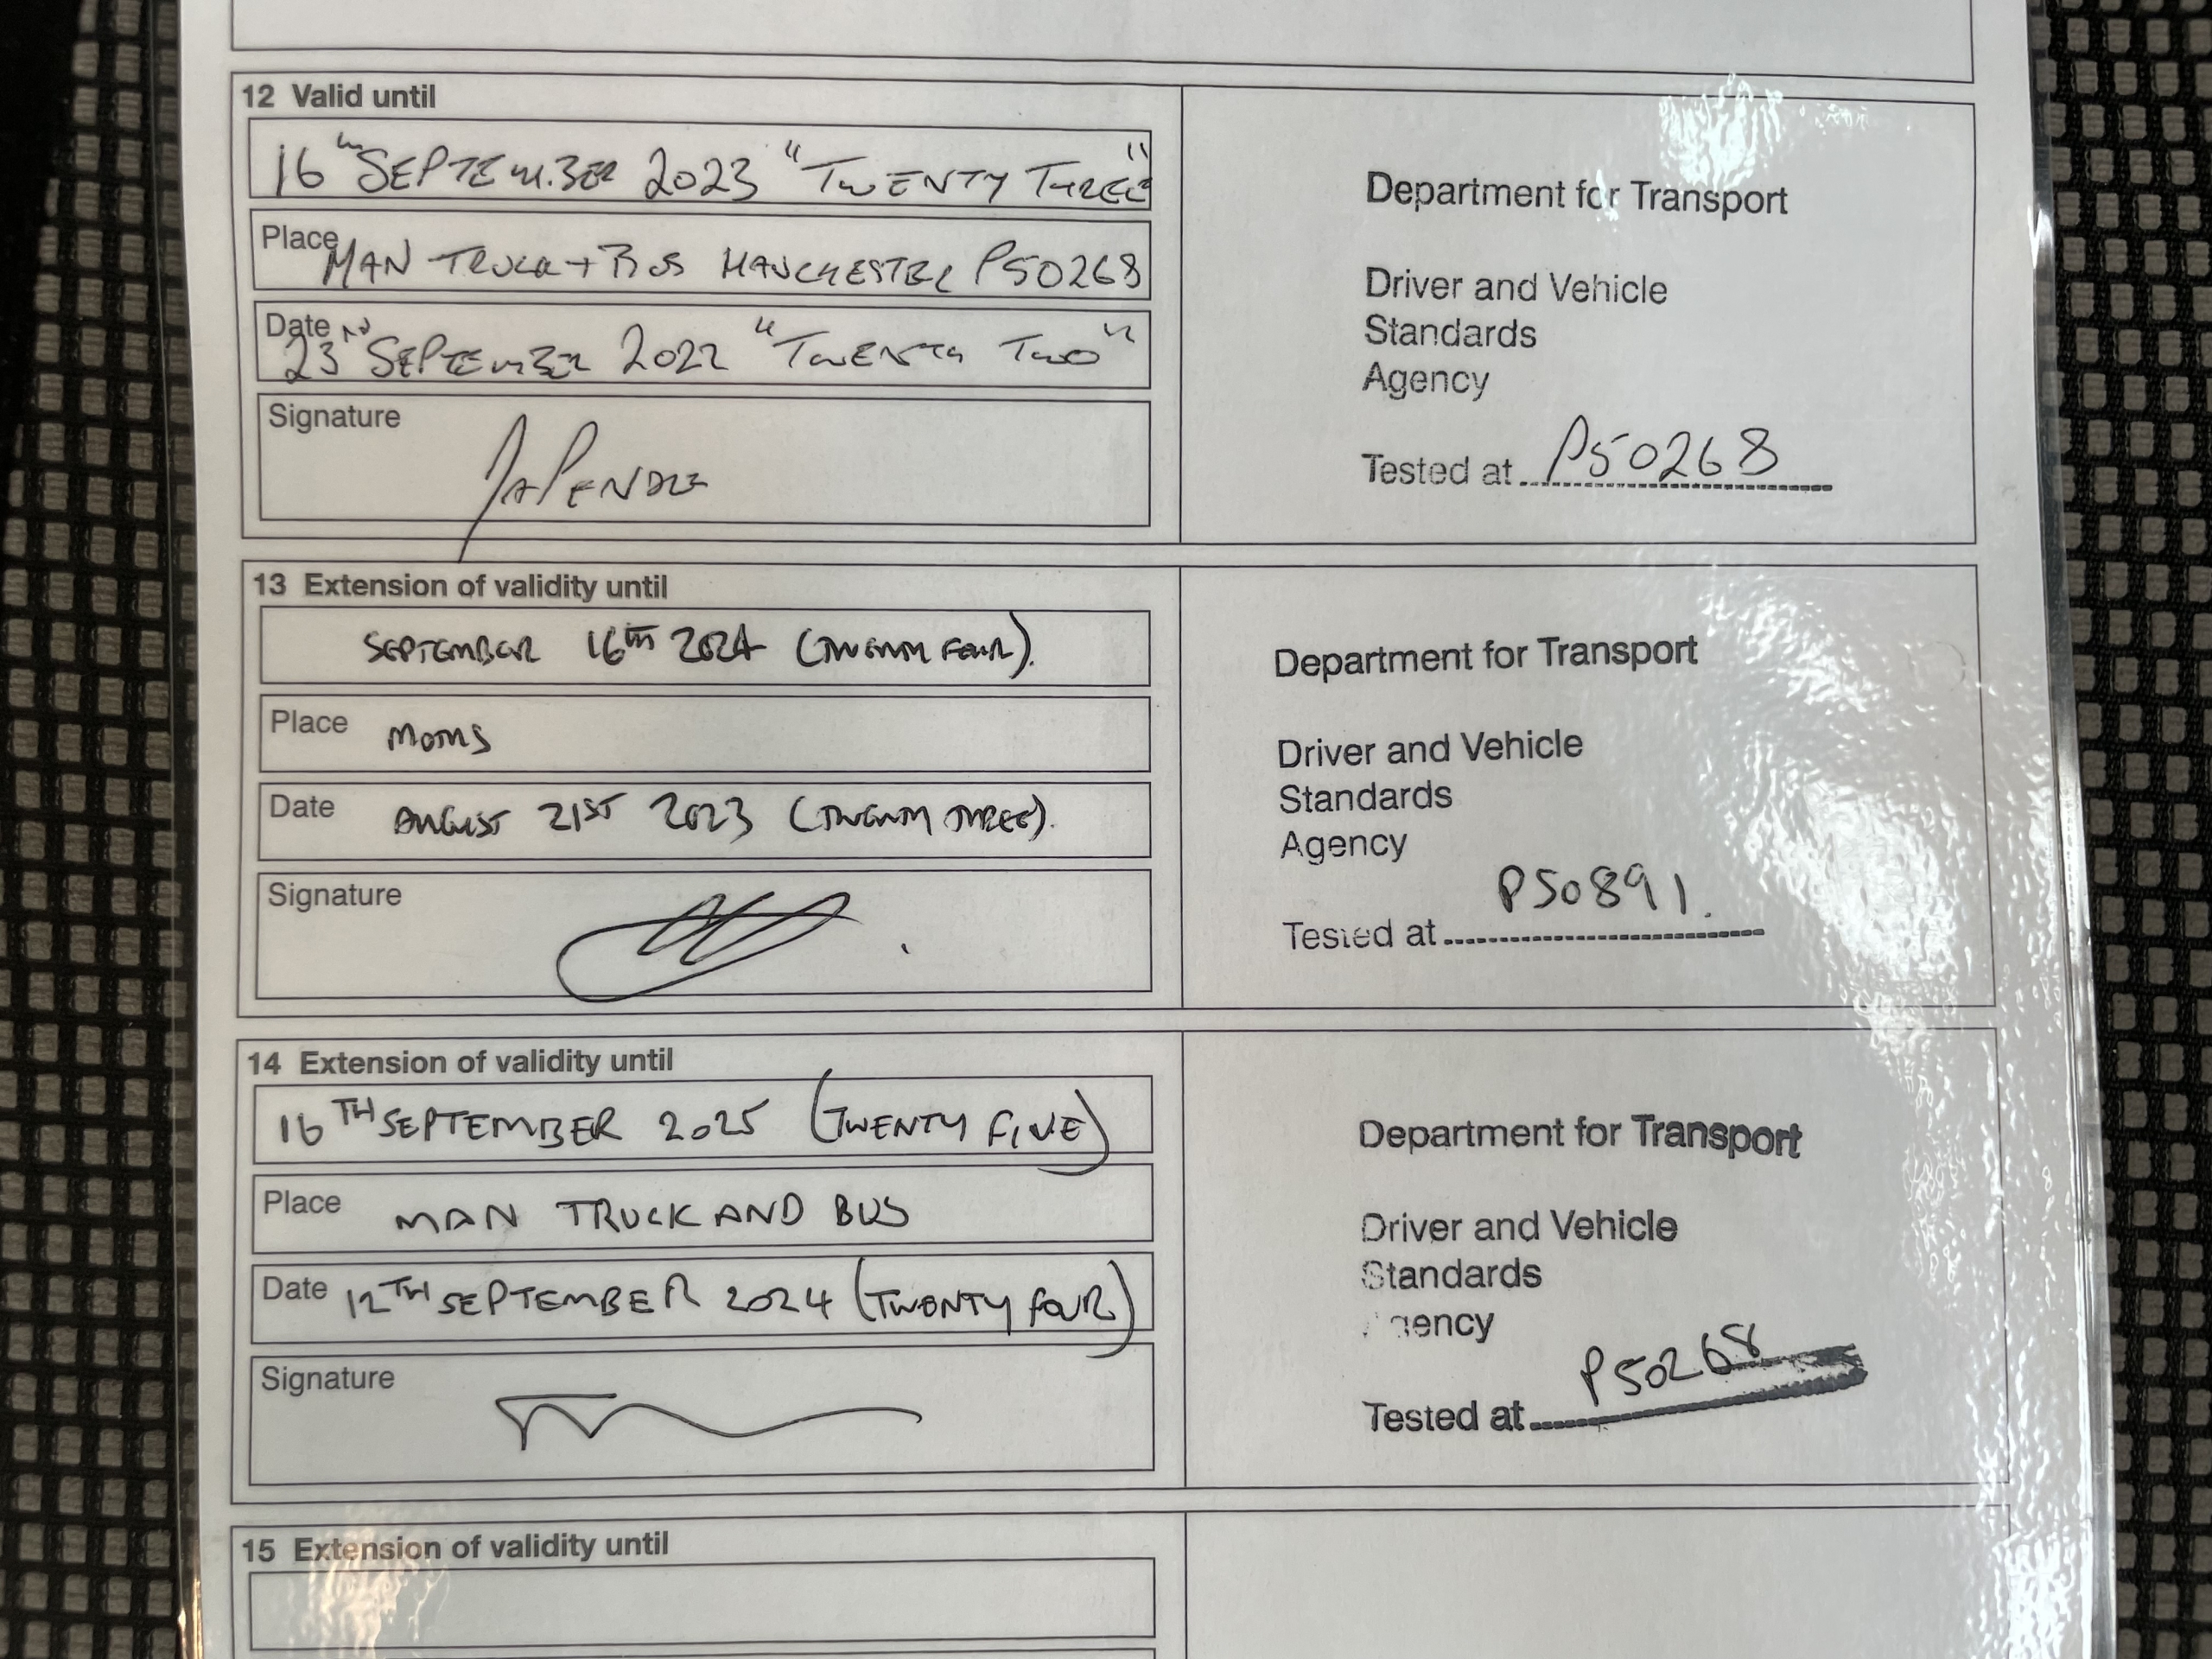 12 Valid until
16th SEPTEMBER 2023 "TWENTY THREE"
Place MAN TRUCK + BUS MANCHESTER P50268
Date 23RD SEPTEMBER 2022 "TWENTY TWO"
Signature
Department for Transport
Driver and Vehicle
Standards
Agency
Tested at P50268
13 Extension of validity until
SEPTEMBER 16TH 2024 (TWENTY FOUR).
Place
Date AUGUST 21ST 2023 (TWENTY THREE).
Signature
Department for Transport
Driver and Vehicle
Standards
Agency
Tested at P50891.
14 Extension of validity until
16TH SEPTEMBER 2025 (TWENTY FIVE)
Place MAN TRUCK AND BUS
Date 12TH SEPTEMBER 2024 (TWENTY FOUR)
Signature
Department for Transport
Driver and Vehicle
Standards
Agency
Tested at P50268
15 Extension of validity until